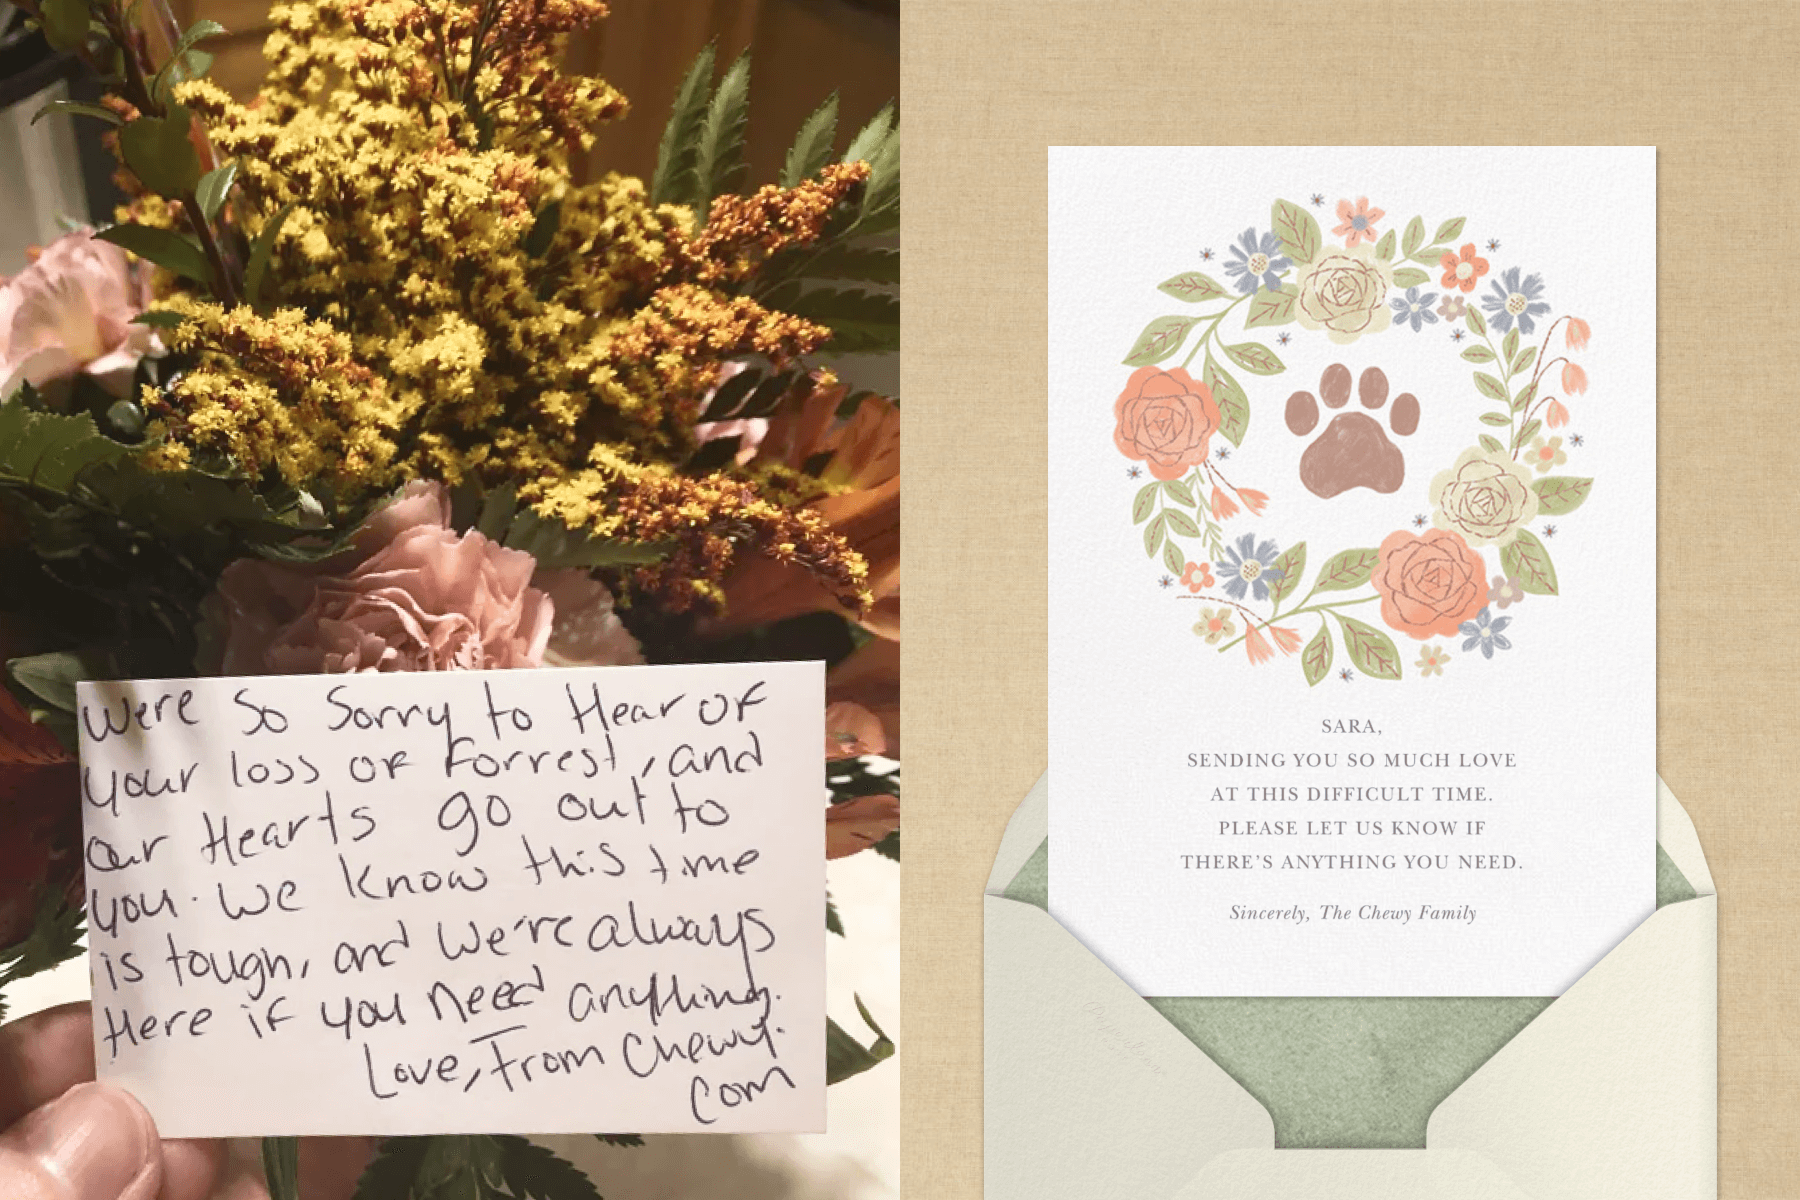 were so sorry to Hear of
your loss of Forrest, and
our Hearts go out to
you. We know this time
is tough, and we're always
Here if you need anything.
Love, From Chewy.
com
SARA,
SENDING YOU SO MUCH LOVE
AT THIS DIFFICULT TIME.
PLEASE LET US KNOW IF
THERE'S ANYTHING YOU NEED.
Sincerely, The Chewy Family